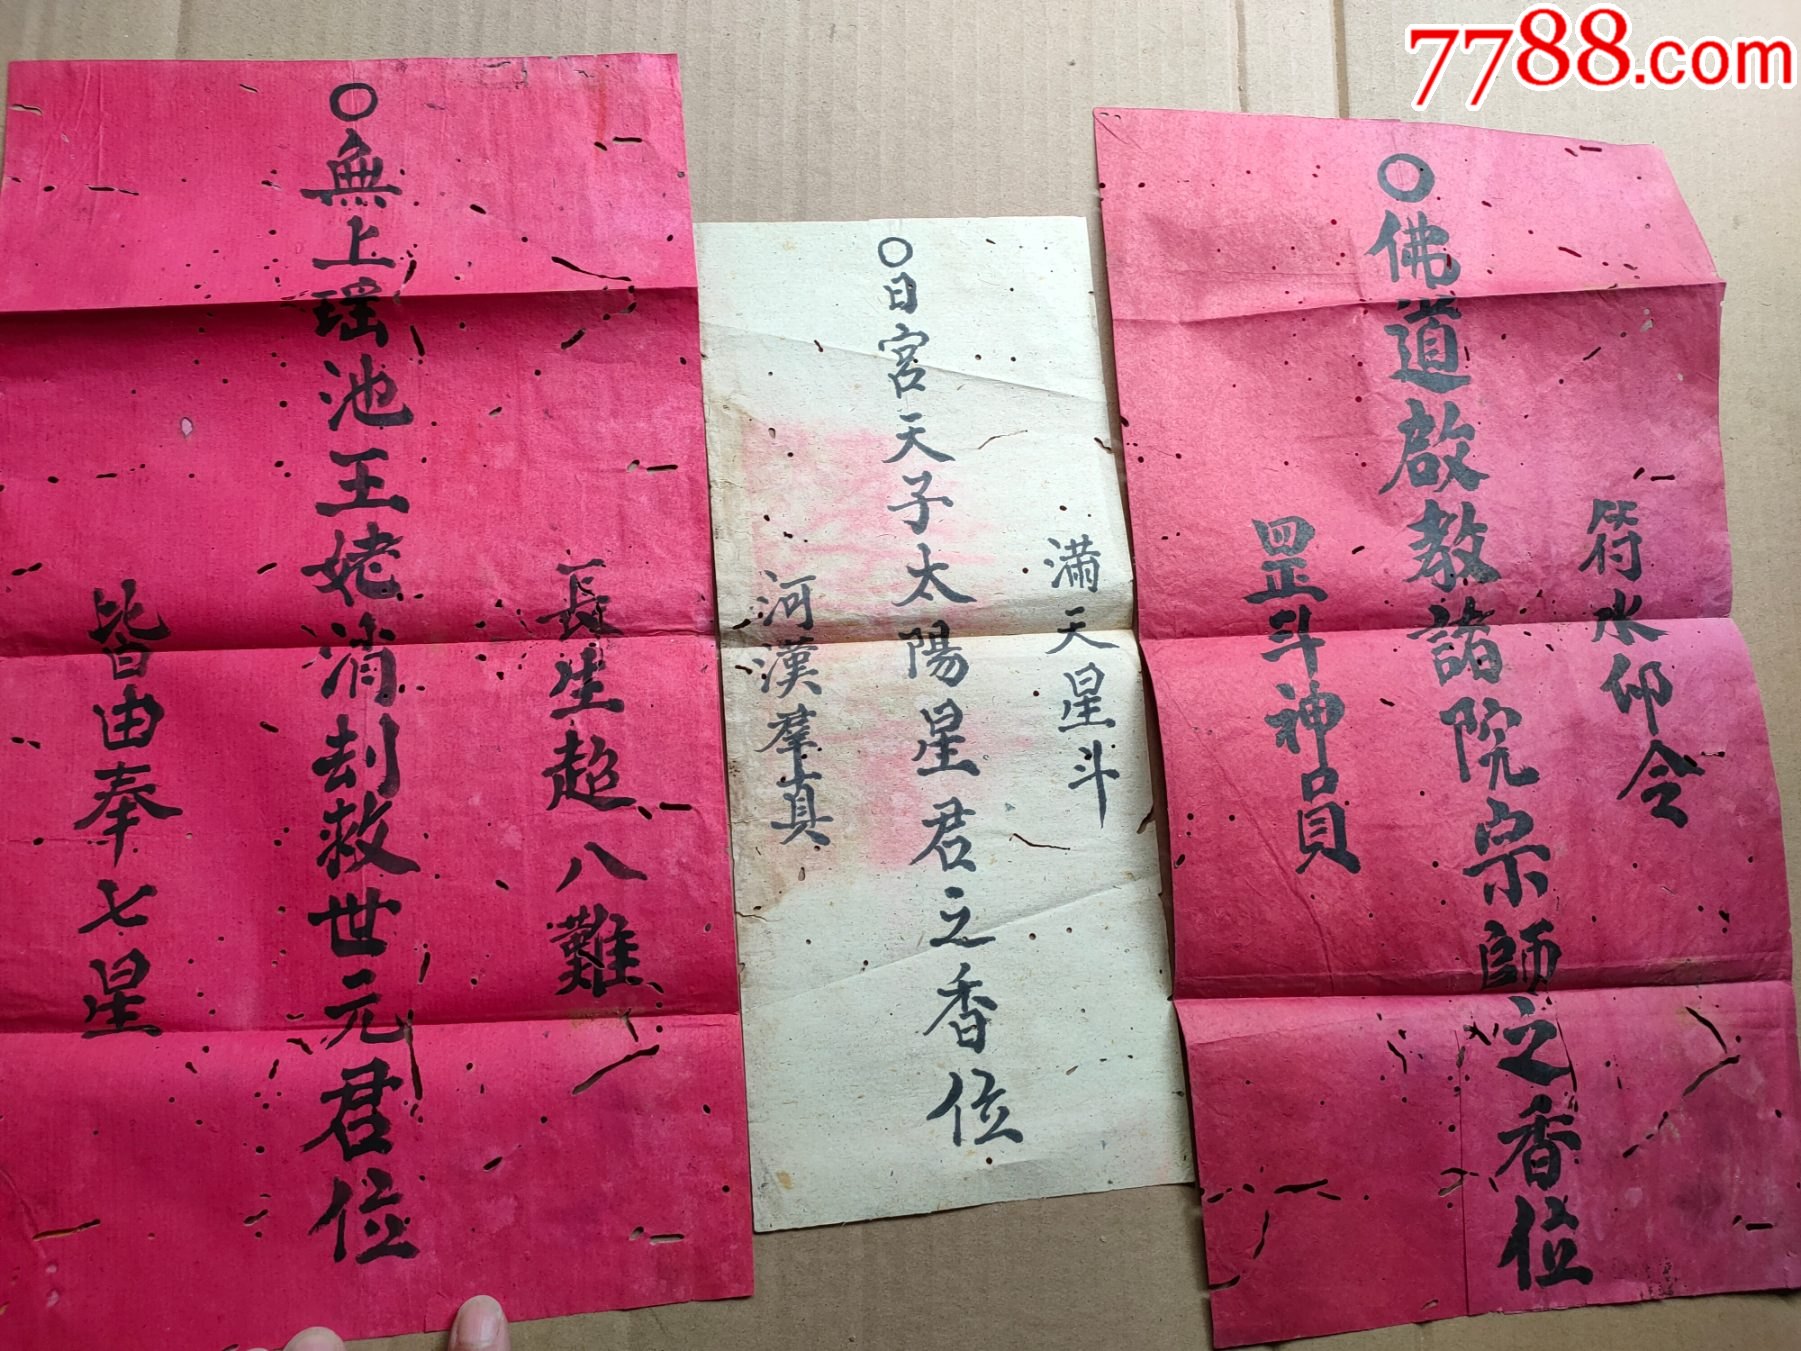 7788.com
〇無上瑤池王姥消刦救世元君位
長生超八難
皆由奉七星
〇日宮天子太陽星君之香位
滿天星斗
河漢羣真
〇佛道啟教諸院宗師之香位
符水印令
罡斗神員